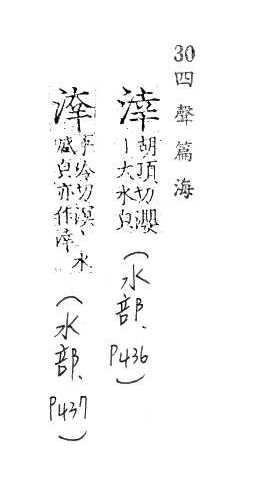 30四聲篇海
涬
胡頂切瀴
丨大水皃
(水部、P436)
乎冷切溟〻水
皃亦作涬
(水部、P437)